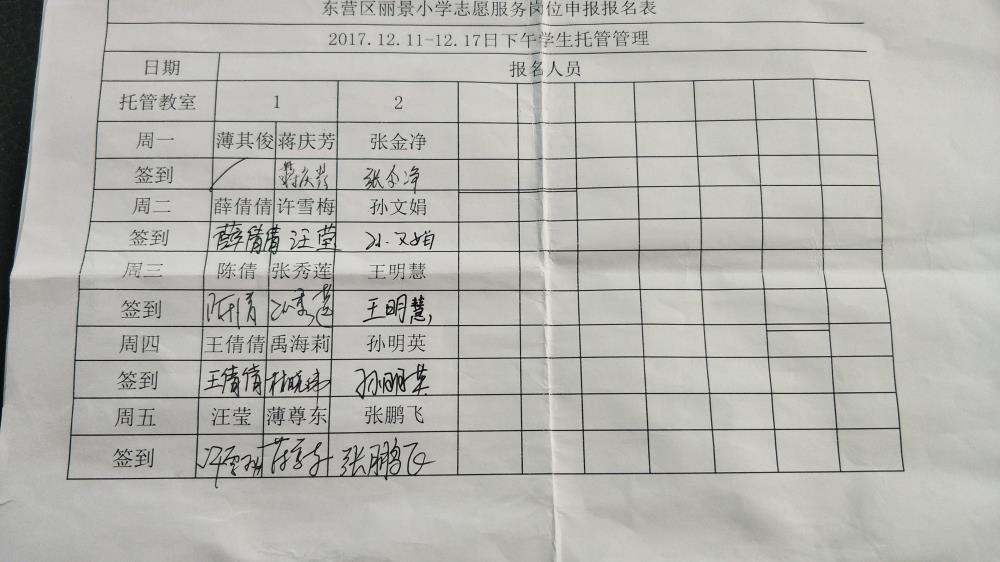 东营区丽景小学志愿服务岗位申报报名表
2017.12.11-12.17日下午学生托管管理
日期 报名人员
托管教室 1 2
周一 薄其俊 蒋庆芳 张金净
签到 蒋庆芳 张金净
周二 薛倩倩 许雪梅 孙文娟
签到 薛倩倩 汪莹 孙文娟
周三 陈倩 张秀莲 王明慧
签到 陈倩 王明慧
周四 王倩倩 禹海莉 孙明英
签到 王倩倩 孙明英
周五 汪莹 薄尊东 张鹏飞
签到 张鹏飞